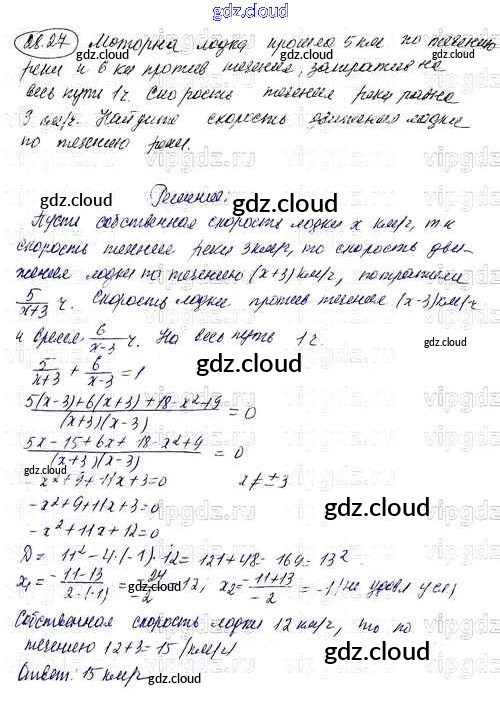 gdz.cloud
28.27 Моторна лодка прошла 5 км по течению
реки и 6 км против течения, затратив на
весь путь 1 ч. Скорость течения реки равна
3 км/ч. Найдите скорость движения лодки
по течению реки.
Решение:
Пусть собственная скорость лодки x км/ч, т.к
скорость течения реки 3 км/ч, то скорость дви-
жения лодки по течению (x+3) км/ч, потратили
5/(x+3) ч. Скорость лодки против течения (x-3) км/ч
и время 6/(x-3) ч. На весь путь 1 ч.
5/(x+3) + 6/(x-3) = 1
(5(x-3)+6(x+3)+18-x²+9)/((x+3)(x-3)) = 0
(5x-15+6x+18-x²+9)/((x+3)(x-3)) = 0
-x²+9+11x+3=0 x≠±3
-x²+9+11x+3=0
-x²+11x+12=0
D = 11²-4·(-1)·12=121+48=169=13²
x₁=(-11-13)/(2·(-1))=-24/-2=12, x₂=(-11+13)/-2=-1 (не удовл усл)
Собственная скорость лодки 12 км/ч, то по
течению 12+3=15 (км/ч)
Ответ: 15 км/ч